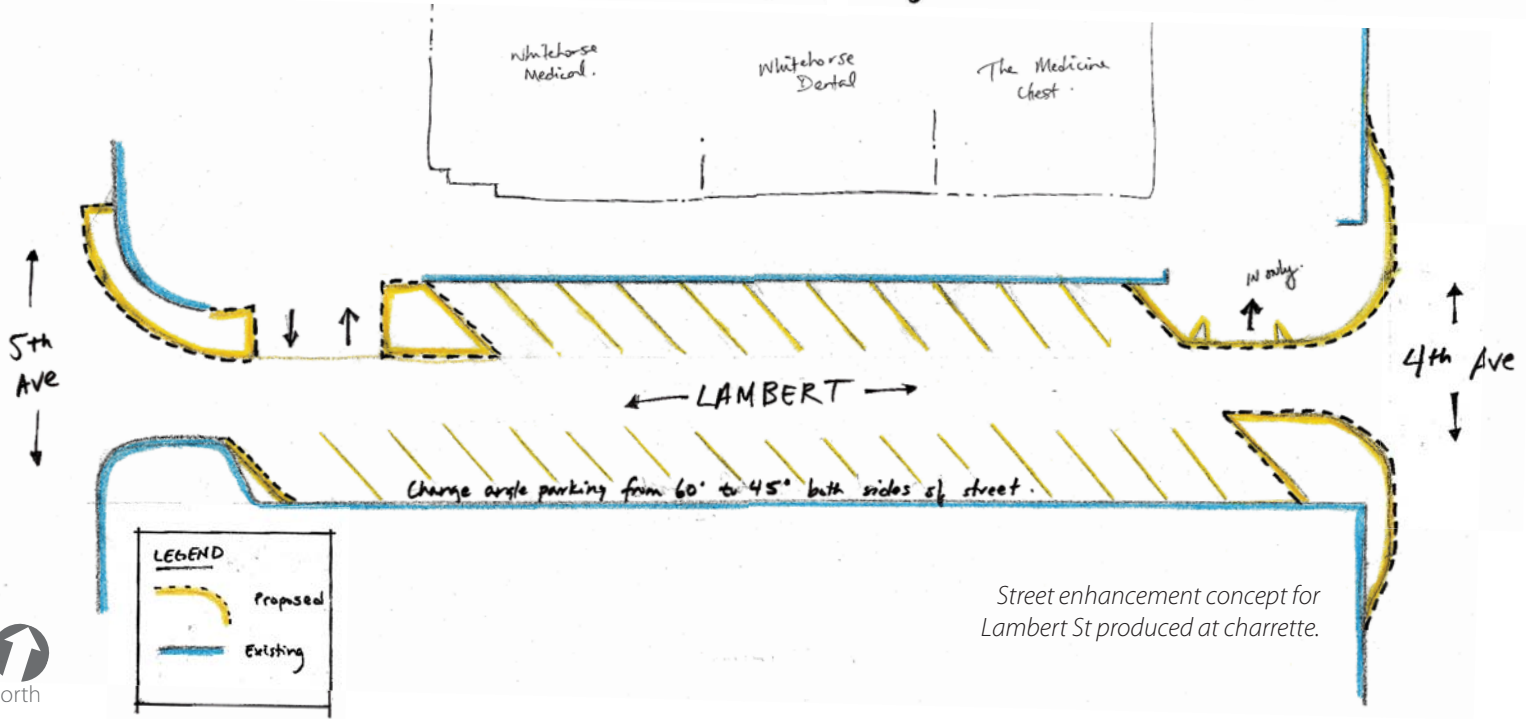 Whitehorse
Medical.
Whitehorse
Dental
The Medicine
Chest.
IN only.
5th
AVE
4th AVE
LAMBERT
Change angle parking from 60° to 45° both sides of street.
LEGEND
Proposed
Existing
Street enhancement concept for
Lambert St produced at charrette.
orth